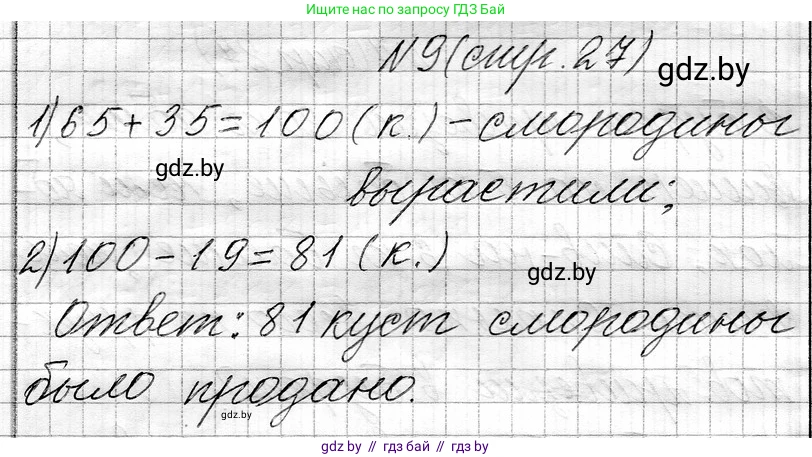 Ищите нас по запросу ГДЗ Бай
N9(стр.27)
gdz.by
1) 65+35=100 (к.) - смородины
gdz.by
вырастили;
2) 100-19=81 (к.)
gdz.by
Ответ: 81 куст смородины
было продано.
gdz.by
gdz.by // гдз бай // гдз by